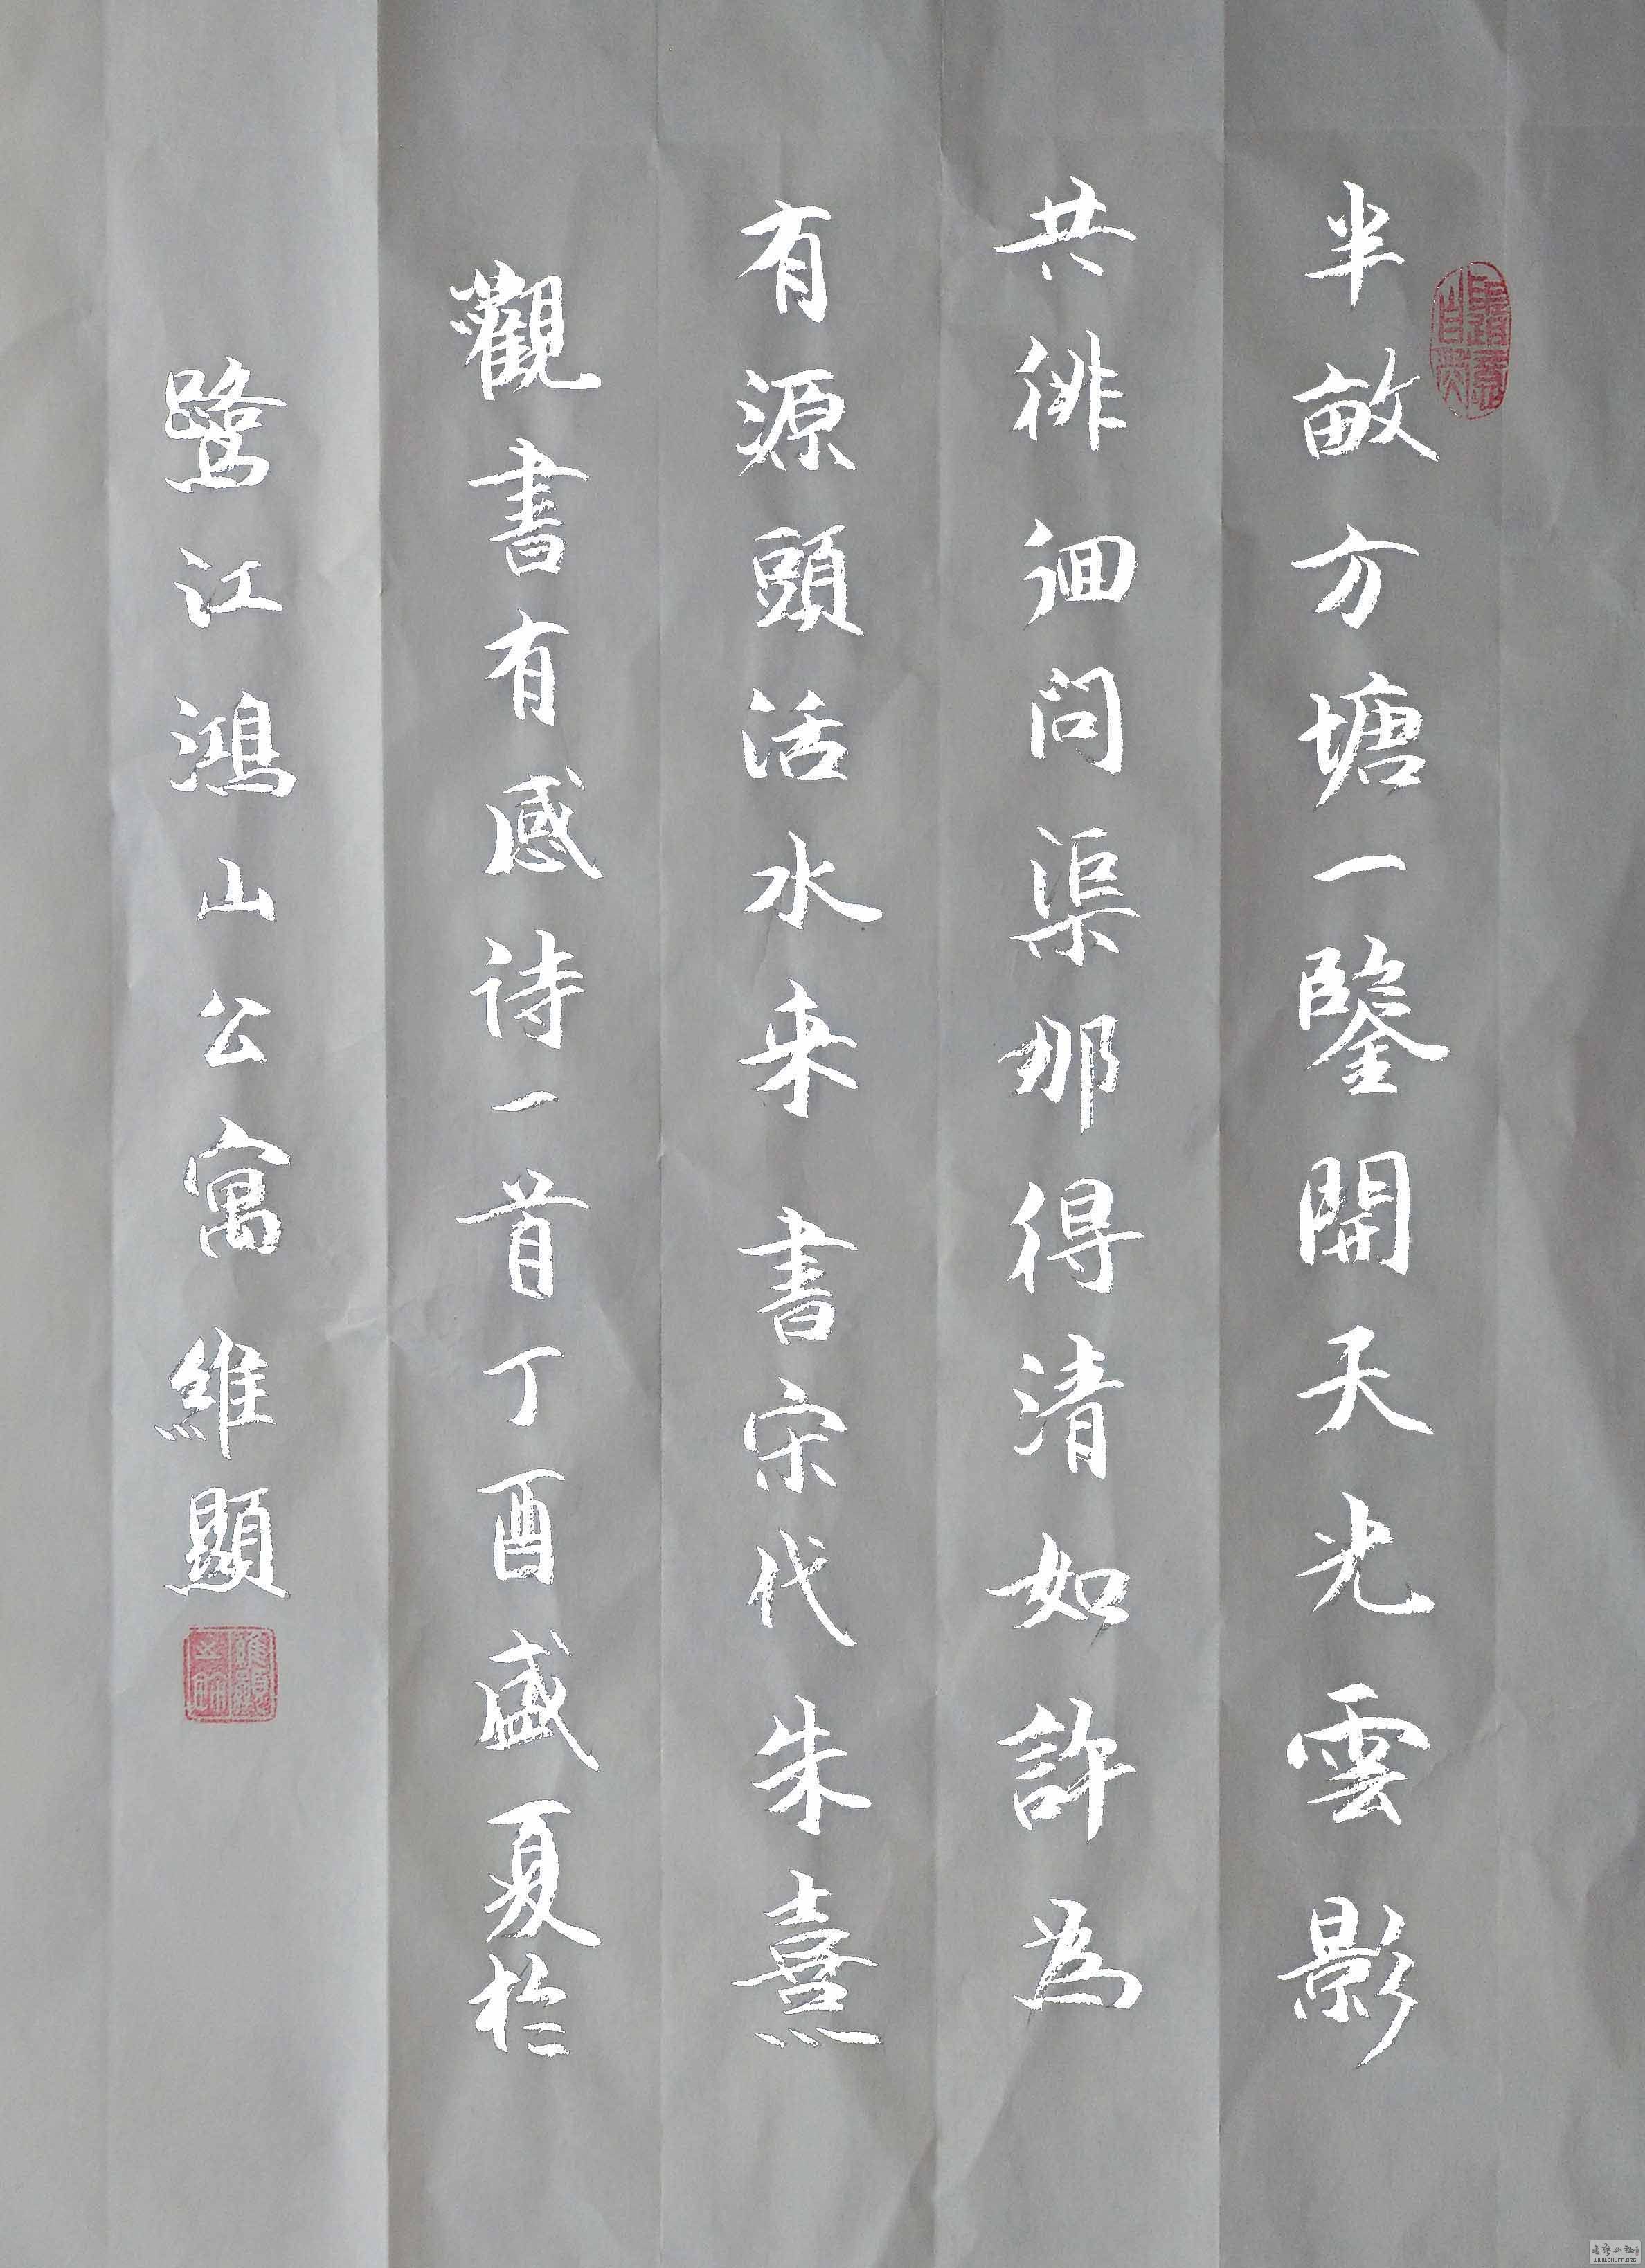 半畝方塘一鑒開天光雲影
共徘徊問渠那得清如許為
有源頭活水来 書宋代朱熹
觀書有感诗一首丁酉盛夏於
鹭江鴻山公寓 維顯
WWW.SHUFR.ORG